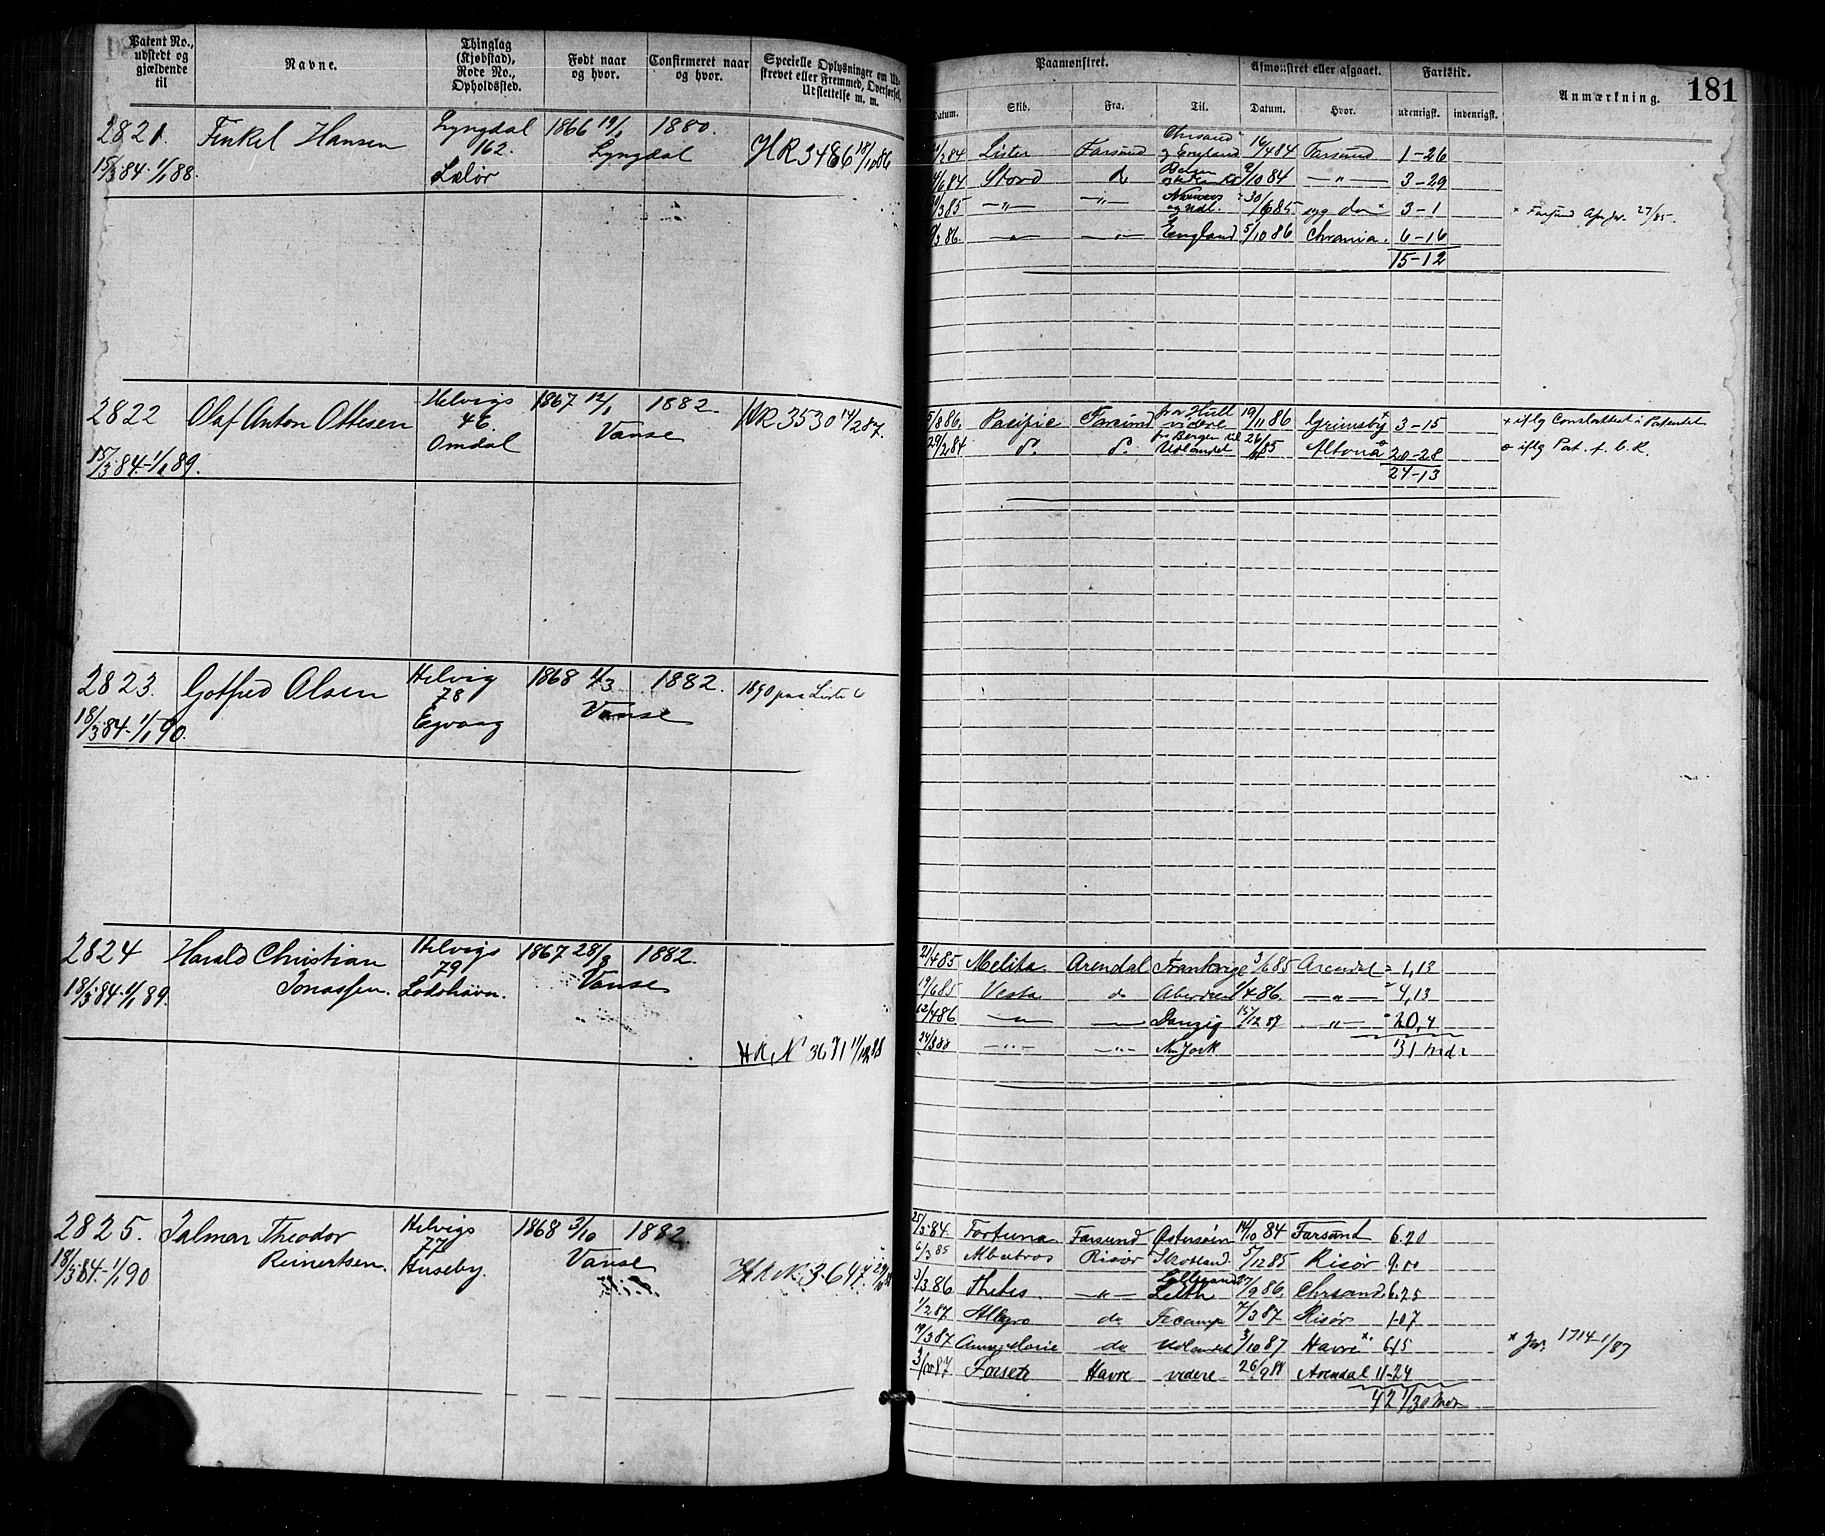 Patent No., udstedt og gjældende til
Navne.
Thinglag (Kjøbstad), Rode No., Opholdssted.
Født naar og hvor.
Confirmeret naar og hvor.
Specielle Oplysninger om Udskrevet eller Fremmed, Overførsel, Udslettelse m. m.
Paamønstret.
Afmønstret eller afgaaet.
Fartstid.
Anmærkning.
181
Datum. Skib. Fra. Til. Datum. Hvor. udenrigsk. indenrigsk.
2821. Tinkel Hansen Lyngdal 1866 19/1 1880.
162. Lyngdal HR 3486 18/10 86
15/3 84-1/1 88.
Lister Farsund og England 16/4 84 Farsund 1-26
Stord do 9/10 84 —„— 3-29
—„— —„— 30/6 85 syg do x 3-1
x Farsund 27/85.
—„— —„— England 5/10 86 Chrania. 6-16
15-12
2822 Olaf Anton Ottesen Helvigs 1867 12/1 1882.
46. Vanse HR 3530 14/2 87.
Omdal
15/3 84-1/1 89.
5/8 86. Pacific Farsund fra Hull videre 19/11 86 Grimsby + 3-15
+ iflg Constattest i Patentet
29/2 84 do. do. fra Bergen til Udlandet 26/85 Altona o 20-28
o iflg Pat. f. C. K.
24-13
2823. Gotfred Olsen Helvig 1868 1/3 1882. 1890 paa Liste 6
78 Vanse
18/3 84-1/1 90. Egvaag
2824 Harald Christian Helvigs 1867 28/8 1882.
Jonassen. 79 Vanse
18/3 84-1/1 89. Lodshavn.
HR N 3671
21/4 85 Melita Arendal Frankrige 3/6 85 Arendal 1,13
19/6 85 Vesta do Aberdeen 1/4 86. —„— 4,13
12/4 86 —„— — Danzig 15/12 87 „— 20,4
24/3 88 —„— —„— New York 31 mdr
2825. Jalmar Theodor Helvigs 1868 3/10 1882.
Reinertsen. 77 Vanse
18/3 84-1/1 90 Huseby. HR N. 3647.
25/3 84 Fortuna Farsund Østersøen 14/10 84 Farsund 6.20
6/3 85 Albatros Risør Skotland. 5/12 85 Risør 9.00
3/3 86 Thetis. —„— Leith 27/9 86. Chrsand. 6.25
1/2 87 Allegro do Fecamp 7/3 87 Risør 1-07
19/3 87 Anne Marie do Udlandet 3/10 87 Havre x 6.15
x Jr. 1714 1/87
3/10 87 Forseti Havre videre 26/9 88 Arendal 11-24
42 1/30 Mdr